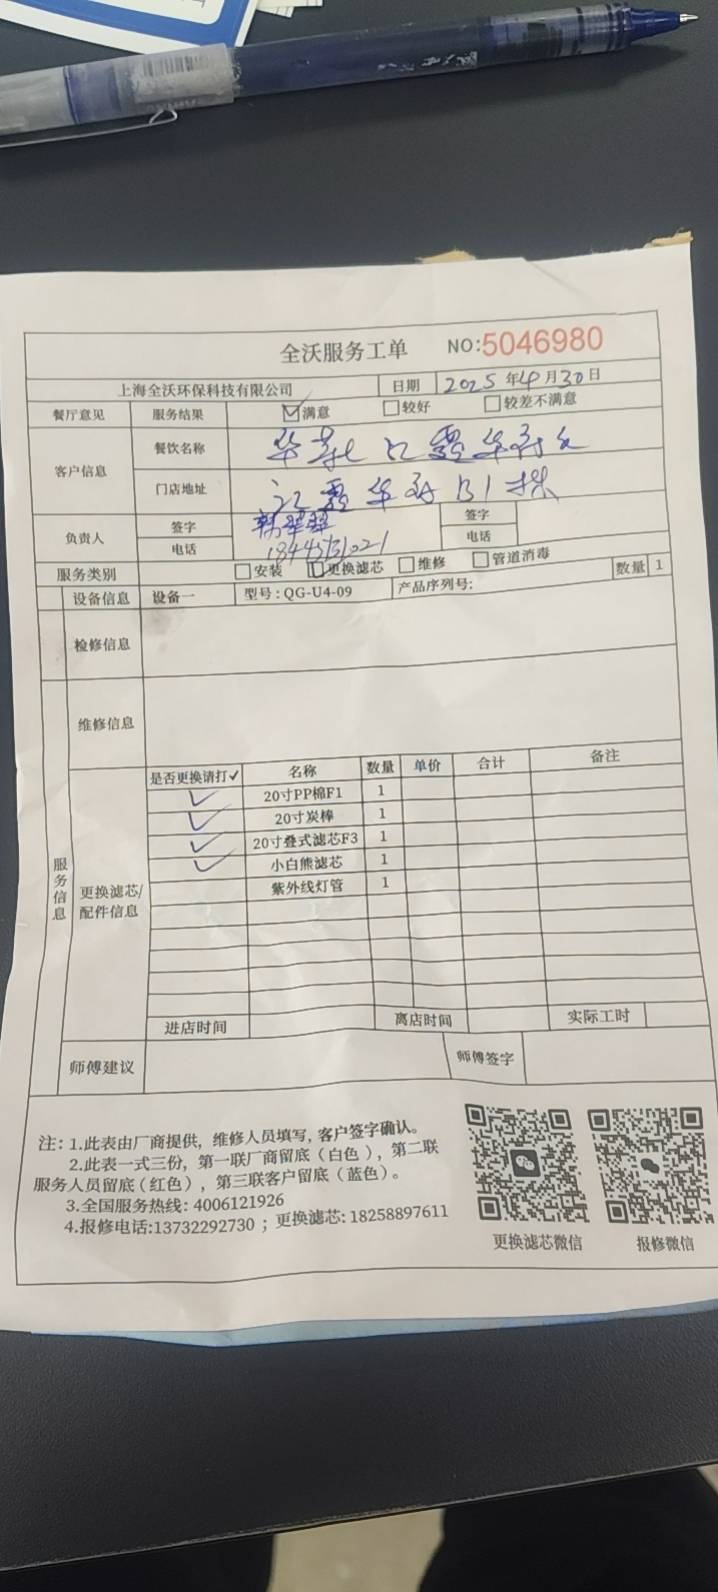 全沃服务工单 NO:5046980
上海全沃环保科技有限公司 日期 2025年4月30日
餐厅意见 服务结果 满意 较好 较差不满意
客户信息 餐饮名称
门店地址
负责人 签字 签字
电话 电话
服务类别 安装 更换滤芯 维修 管道消毒 数量 1
设备信息 设备一 型号:QG-U4-09 产品序列号:
检修信息
维修信息
服务信息
更换滤芯/配件信息
是否更换请打✓ 名称 数量 单价 合计 备注
✓ 20寸PP棉F1 1
✓ 20寸炭棒 1
✓ 20寸叠式滤芯F3 1
✓ 小白熊滤芯 1
紫外线灯管 1
进店时间 离店时间 实际工时
师傅建议 师傅签字
注: 1.此表由厂商提供, 维修人员填写, 客户签字确认。
2.此表一式三份, 第一联厂商留底(白色), 第二联
服务人员留底(红色), 第三联客户留底(蓝色)。
3.全国服务热线: 4006121926
4.报修电话:13732292730 ; 更换滤芯: 18258897611
更换滤芯微信 报修微信